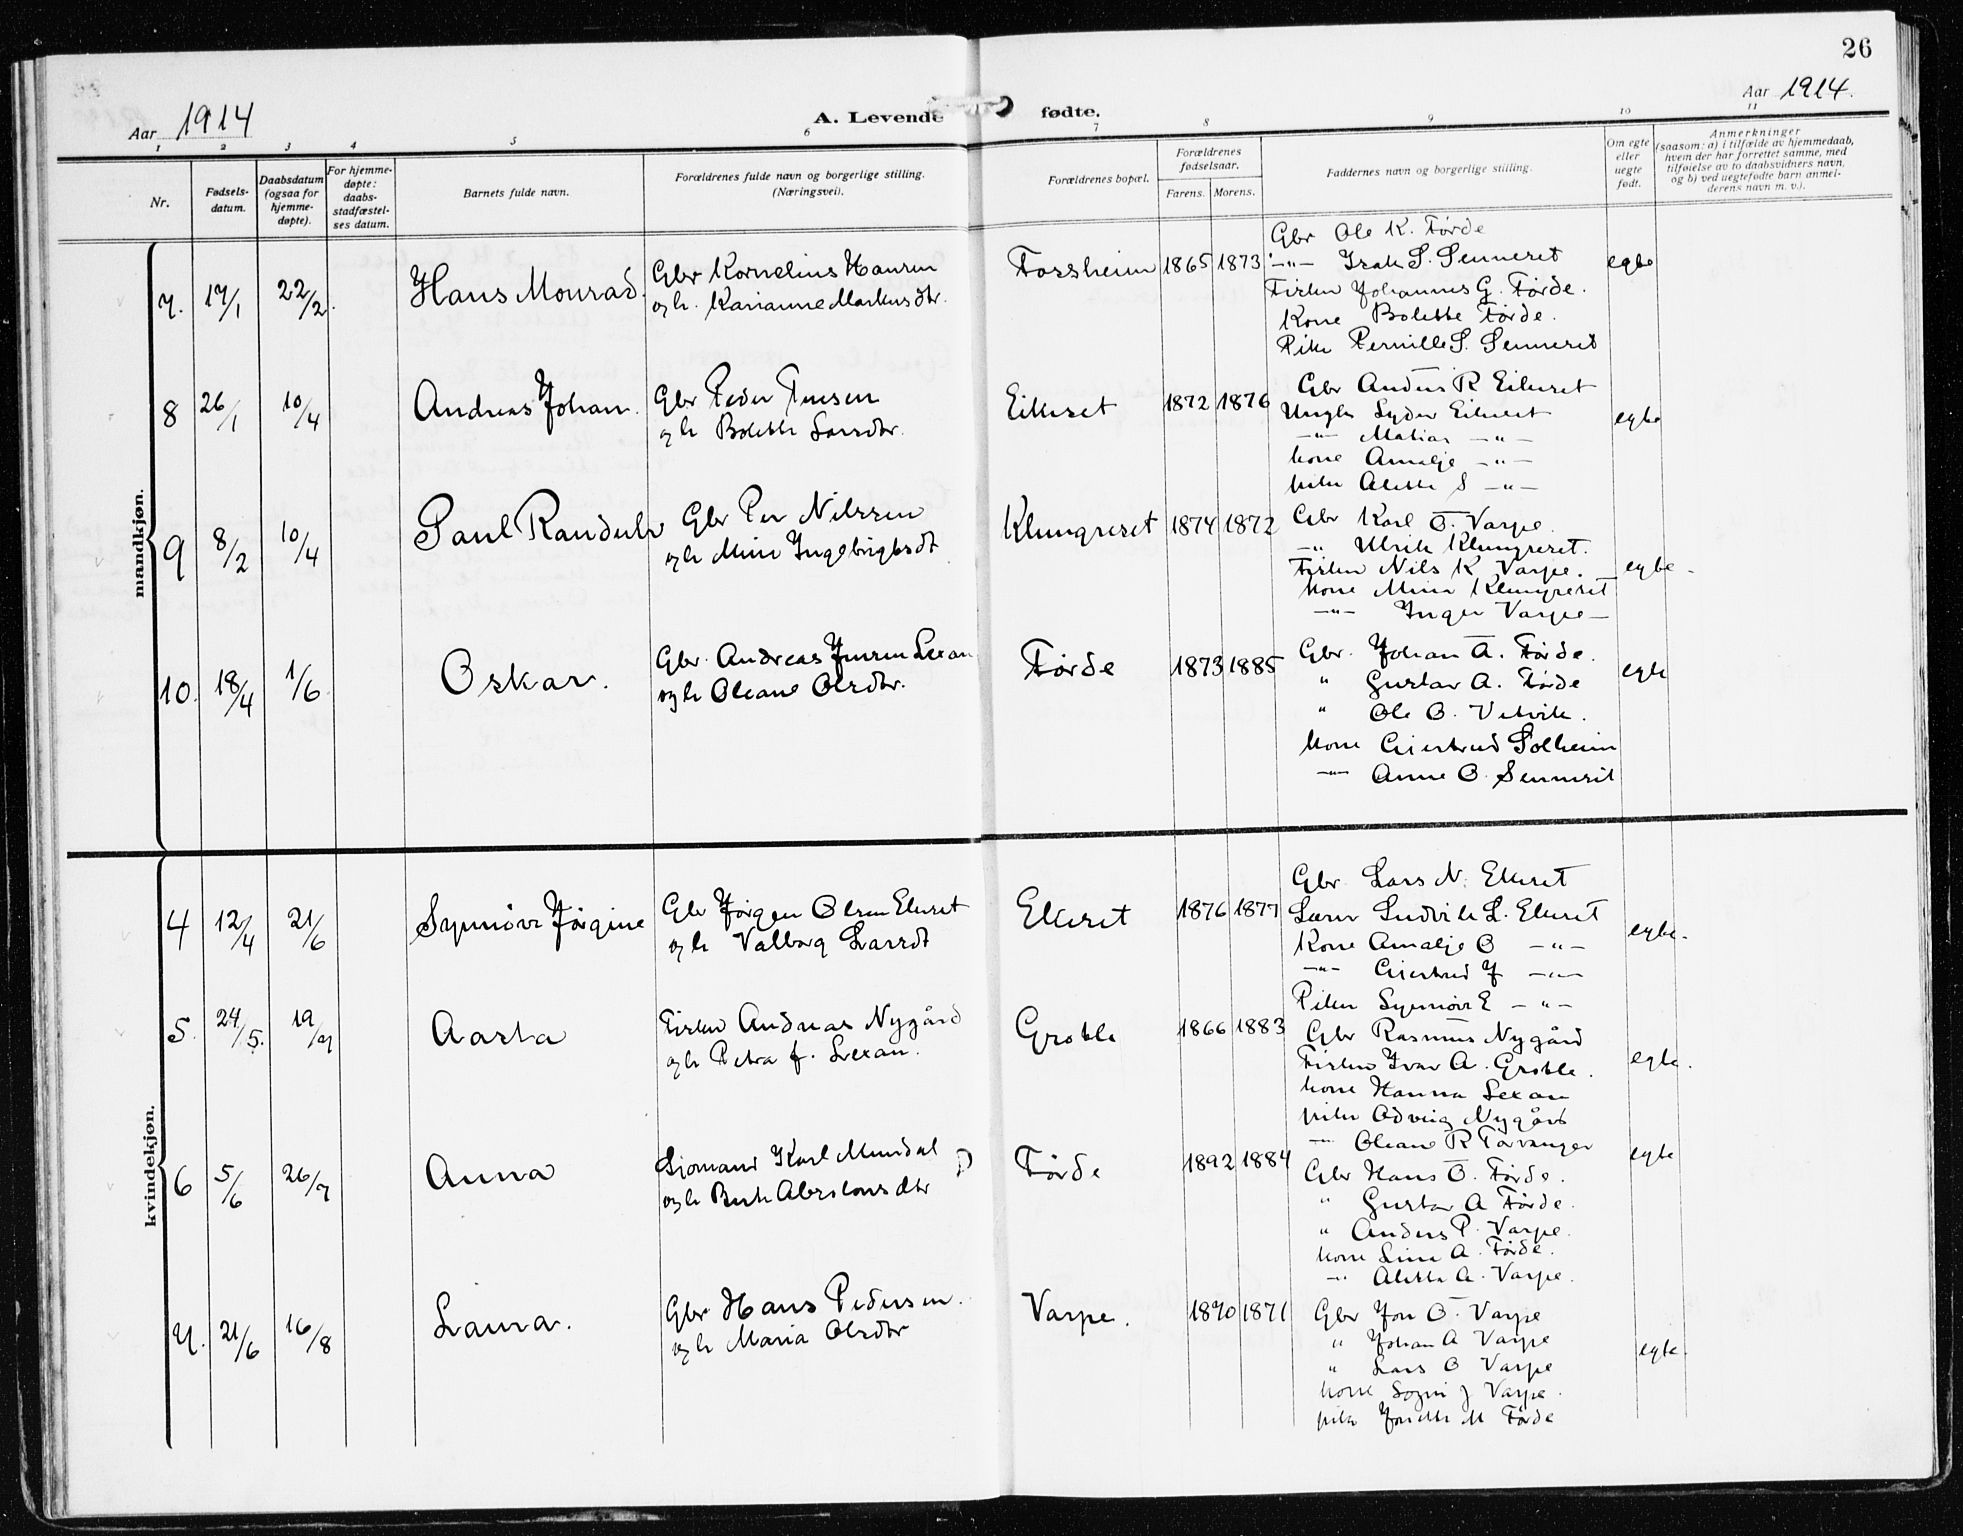 26
Aar 1914
A. Levende fødte.
Aar 1914.
1 2 3 4 5 6 7 8 9 10 11
Nr.
Fødsels-
datum.
Daabsdatum
(ogsaa for
hjemme-
døpte).
For hjemme-
døpte:
daabs-
stadfæstel-
ses datum.
Barnets fulde navn.
Forældrenes fulde navn og borgerlige stilling.
(Næringsvei).
Forældrenes bopæl.
Forældrenes
fødselsaar.
Farens. Morens.
Faddernes navn og borgerlige stilling.
Om egte
eller
uegte
født.
Anmerkninger
(saasom: a) i tilfælde av hjemmedaab,
hvem der har forrettet samme, med
tilføielse av to daabsvidners navn,
og b) ved uegtefødte barn anmel-
derens navn m. v.).
mandkjøn.
7. 17/1 22/2. Hans Monrad.
Gbr Kornelius Hansen
og h. Karianne Markusdtr.
Forsheim 1865 1873
Gbr Ole K. Førde
-"- Isak S. Senneset
Fisker Johannes G. Førde.
Kone Bolette Førde.
Pike Pernille S. Senneset
egte
8 26/1 10/4 Andreas Johan.
Gbr Peder
og h Bolette Larsdtr.
Eikeset 1872 1876
Gbr Anders R Eikeset
Ungk Syder Eikeset
-"- Matias -"-
kone Amalje -"-
pike Alette S -"-
egte
9 8/2 10/4 Paul Randulv
Gbr Per Nilssen
og h Mina Ingebrigtsdt
Klungreset 1874 1872
Gbr Karl O. Varpe.
-"- Ulrik Klungreset.
Fisker Nils K Varpe.
kone Mina Klungreset
-"- Inger Varpe
egte
10. 18/4 1/6 Oskar.
Gbr. Andreas Jensen Lexau
og h Oleane Olsdtr.
Førde 1873 1885
Gbr. Johan A. Førde.
" Gustav A. Førde
" Ole O. Vetvik.
kone Gjertrud Solheim
-"- Anne O. Senneset
egte
kvindekjøn.
4 12/4 21/6 Synnøve Jørgine
Gbr Jørgen Olsen Ekeset
og h Valborg Larsdt
Ekeset 1876 1877
Gbr. Lars N. Ekeset
Lærer Ludvik L. Ekeset
Kone Amalje O -"-
-"- Gjertrud J -"-
Piken Synnøve E -"-
egte.
5. 24/5. 19/7 Aasta
Fisker Andreas Nygård
og h Petra J. Lexau.
Grotle 1866 1883
Gbr Rasmus Nygård
Fisker Ivar A. Grotle.
kone Hanna Lexau
pike Odveig Nygård
-"- Oleane R Torvanger
egte.
6 5/6 26/7 Anna
Sjømand Karl Mundal
og h Berte Abselonsdtr
Førde 1892 1884
Gbr Hans O. Førde.
" Gustav A Førde.
" Anders P. Varpe.
kone Lina A. Førde.
-"- Alette A. Varpe.
egte
7. 21/6 16/8 Laura.
Gbr Hans Pedersen.
og h Maria Olsdtr
Varpe. 1870 1871
Gbr Jon O. Varpe
" Johan A Varpe
" Lars O Varpe
kone Sogni J Varpe.
pike Jonette M Førde
egte.